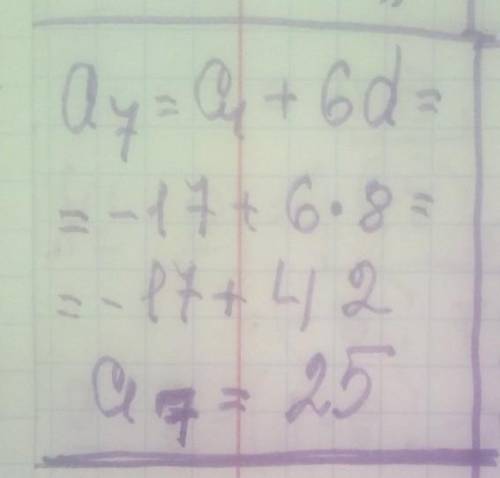 a₇ = a₁ + 6d =
= -17 + 6·8 =
= -17 + 42
a₇ = 25